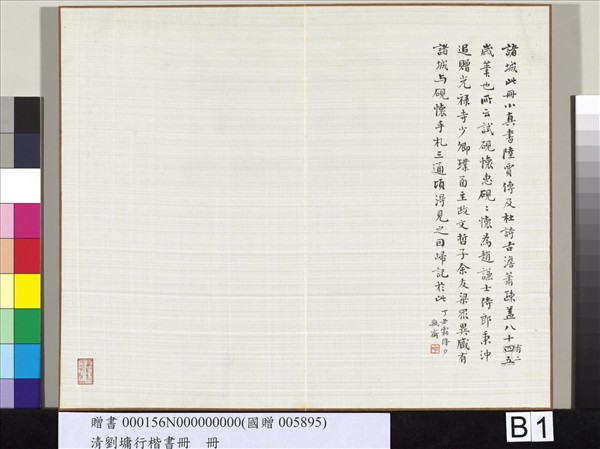 諸城此冊小真書陸賈傳及杜詩古澹蕭疎蓋八十四五
有二
歲書也所云試硯懷惠硯:懷為趙謙士侍郎秉沖
追贈光祿寺少卿璞函主政文哲子余友梁眾異藏有
諸城与硯懷手札三通頃得見之因歸記於此
丁丑霜降夕
贈書 000156N000000000(國贈 005895)
清劉墉行楷書冊 冊
B 1